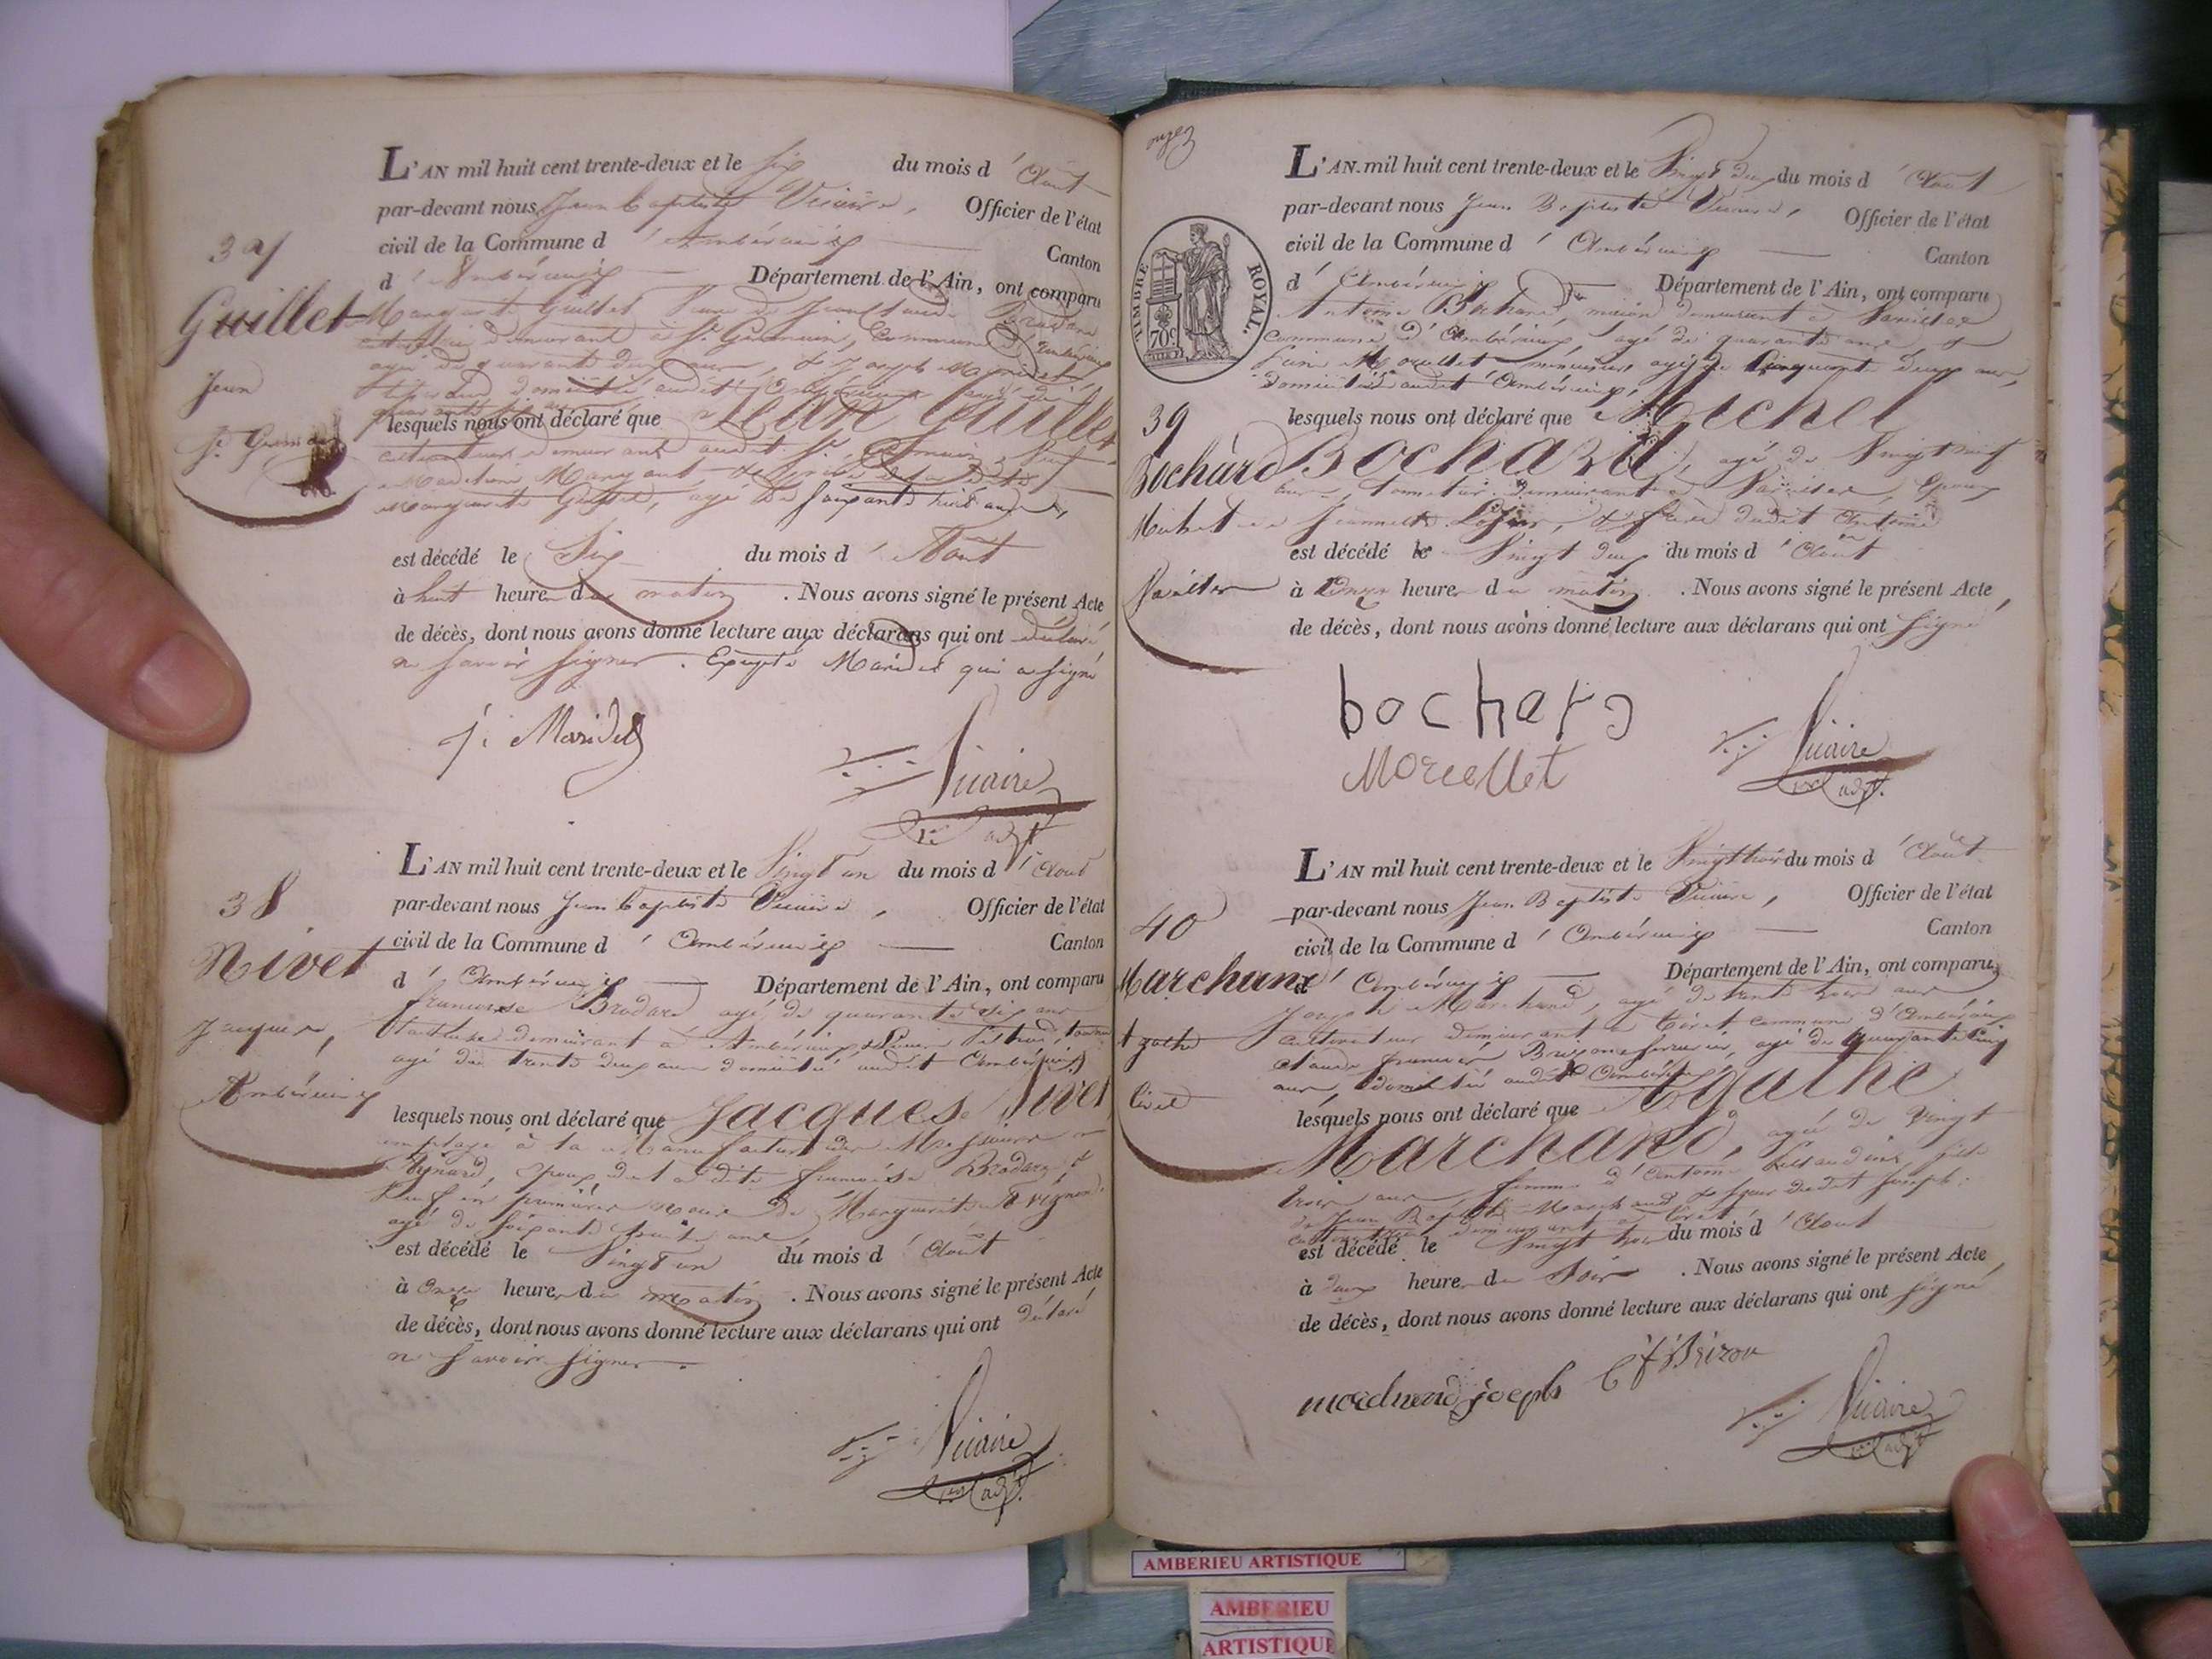 37
Guillet
Jean
St. Germain
L'AN mil huit cent trente-deux et le six du mois d'Août
par-devant nous Jean Baptiste Vicaire, Officier de l'état
civil de la Commune d'Ambérieux Canton
d'Ambérieux Département de l'Ain, ont comparu
Margueritte Guillet Veuve de Jean Claude
demeurant à St. Germain, Commune d'Ambérieux
agé de quarante deux ans, & Joseph Maridet
domicilié audit Ambérieux agé de
lesquels nous ont déclaré que Jean Guillet
cultivateur demeurant audit St. Germain, Veuf
de la dite
Marguerite Guillet, agé de soixante huit ans,
est décédé le Six du mois d'Août
à huit heure du matin. Nous avons signé le présent Acte
de décès, dont nous avons donné lecture aux déclarans qui ont déclaré
ne savoir signer. Excepté Maridet qui a signé
j. Maridet
Vicaire
1er adjt
38
Nivet
Jacques,
Ambérieux
L'AN mil huit cent trente-deux et le Vingt un du mois d'Août
par-devant nous Jean Baptiste Vicaire, Officier de l'état
civil de la Commune d'Ambérieux Canton
d'Ambérieux Département de l'Ain, ont comparu
françoise Brodard agé de quarante six ans
demeurant à Ambérieux,
agé de trente deux ans domicilié audit Ambérieux
lesquels nous ont déclaré que Jacques Nivet
employé à la Manufacture des Messieurs
Aynard, époux de la dite françoise Brodard &
Veuf en premières noces de Marguerite
agé de soixante huit ans
est décédé le Vingt un du mois d'Août
à onze heure du matin. Nous avons signé le présent Acte
de décès, dont nous avons donné lecture aux déclarans qui ont déclaré
ne savoir signer.
Vicaire
1er adjt.
onze
TIMBRE ROYAL.
70c
39
Bochard
Michel
Vareilles
L'AN mil huit cent trente-deux et le Vingt deux du mois d'Août
par-devant nous Jean Baptiste Vicaire, Officier de l'état
civil de la Commune d'Ambérieux Canton
d'Ambérieux Département de l'Ain, ont comparu
Antoine Bochard, maçon demeurant à Vareilles
commune d'Ambérieux, agé de quarante ans &
menuisier, agé de Cinquante deux ans,
domicilié audit Ambérieux,
lesquels nous ont déclaré que Michel
Bochard, agé de Vingt neuf
ans, tonnelier demeurant à Vareilles, Epoux
de Jeannette, & frère dudit Antoine
est décédé le Vingt deux du mois d'Août
à onze heure du matin. Nous avons signé le présent Acte
de décès, dont nous avons donné lecture aux déclarans qui ont signé
bochard
Morellet
Vicaire
1er adjt.
40
Marchand
Agathe
Tiret
L'AN mil huit cent trente-deux et le Vingt trois du mois d'Août
par-devant nous Jean Baptiste Vicaire, Officier de l'état
civil de la Commune d'Ambérieux Canton
d'Ambérieux Département de l'Ain, ont comparu
Joseph Marchand, agé de trente trois ans
cultivateur demeurant à Tiret commune d'Ambérieux
Claude françois Brizon serrurier, agé de quarante cinq
ans, domicilié audit Ambérieux
lesquels nous ont déclaré que Agathe
Marchand, agée de Vingt
trois ans femme d'Antoine fille
de Jean Baptiste Marchand & soeur dudit Joseph
cultivatrice demeurant à Tiret
est décédé le Vingt trois du mois d'Août
à deux heure du Soir. Nous avons signé le présent Acte
de décès, dont nous avons donné lecture aux déclarans qui ont signé
marchand joseph
C f Brizon
Vicaire
1er adjt
AMBERIEU ARTISTIQUE
AMBERIEU
ARTISTIQUE